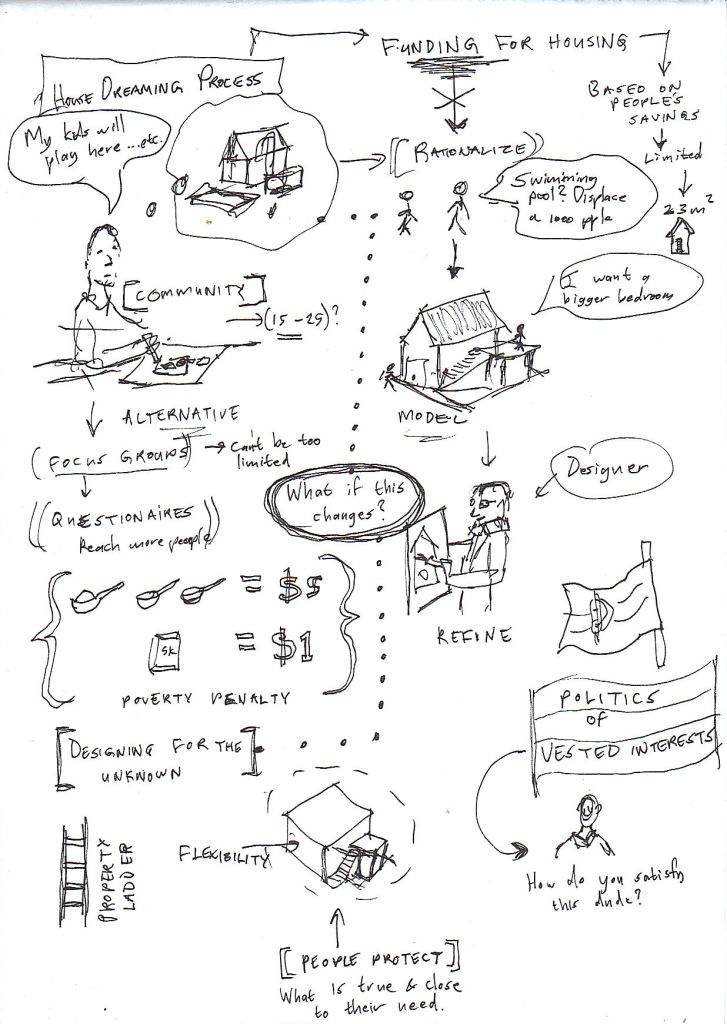 FUNDING FOR HOUSING
HOUSE DREAMING PROCESS
BASED ON
PEOPLE'S
SAVINGS
My kids will
play here ...etc.
[RATIONALIZE]
Limited
Swimming
pool? Displace
a 1000 pple
23m²
[COMMUNITY]
I want a
bigger bedroom
(15-25)?
MODEL
ALTERNATIVE
(FOCUS GROUPS)
Can't be too
limited
Designer
What if this
changes?
((QUESTIONAIRES
Reach more people))
= $5
5K = $1
REFINE
POVERTY PENALTY
POLITICS
OF
VESTED INTERESTS
[DESIGNING FOR THE
UNKNOWN]
FLEXIBILITY
PROPERTY
LADDER
How do you satisfy
this dude?
[PEOPLE PROTECT]
What is true & close
to their need.